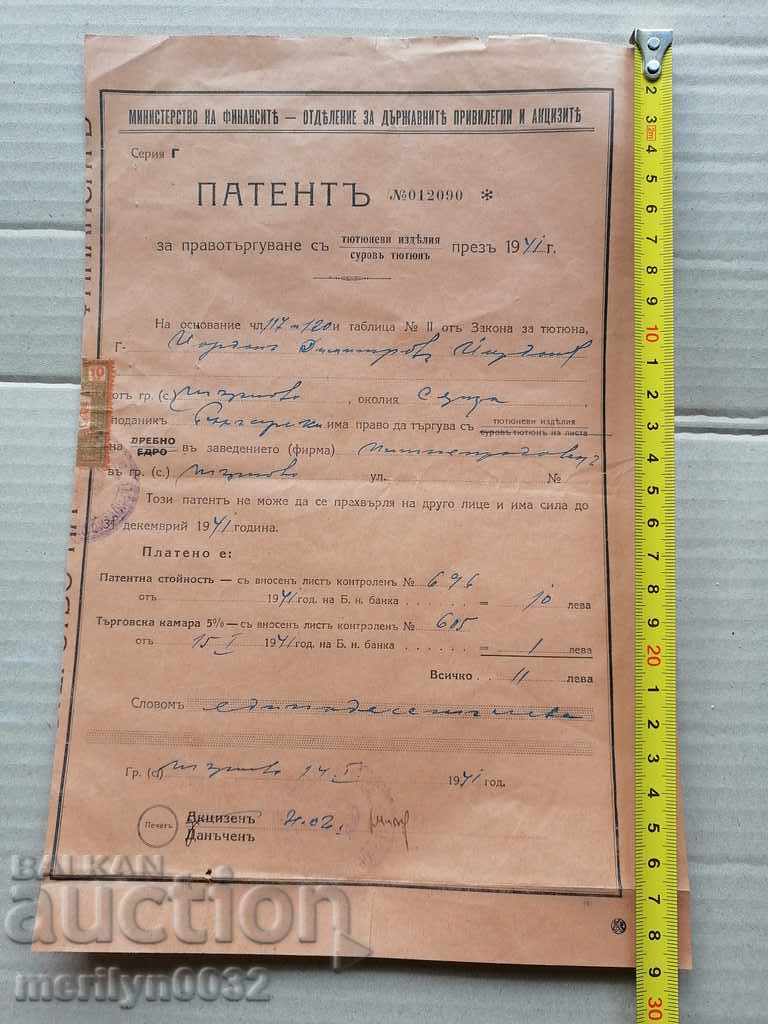 МИНИСТЕРСТВО НА ФИНАНСИТѢ — ОТДѢЛЕНИЕ ЗА ДЪРЖАВНИТѢ ПРИВИЛЕГИИ И АКЦИЗИТѢ
Серия Г
ПАТЕНТЪ №012090 *
за правотъргуване съ тютюневи изделия суровъ тютюнъ презъ 1941 г.
На основание чл. 117 и 120 и таблица № II отъ Закона за тютюна,
Г- Йорданъ Димитровъ
отъ гр. (с.) околия
поданикъ Български има право да търгува съ тютюневи изделия суровъ тютюнъ на листа
на ДРЕБНО ЕДРО въ заведението (фирма)
въ гр. (с.) ул. №
Този патентъ не може да се прехвърля на друго лице и има сила до
декемврий 1941 година.
Платено е:
Патентна стойность — съ вносенъ листъ контроленъ № 696
отъ 1941 год. на Б. н. банка . . . . . . = 10 лева
Търговска камара 5% — съ вносенъ листъ контроленъ № 605
отъ 15 I 1941 год. на Б. н. банка . . . . . = 1 лева
Всичко . . 11 лева
Словомъ единадесеть лева
Гр. (с.) 14 I 1941 год.
Печатъ Акцизенъ
Данъченъ
10
BALKAN
auction
merilyn0032
2 3 4 5 6 7 8 9 10 1 2 3 4 5 6 7 8 9 20 1 2 3 4 5 6 7 8 9 30
2m